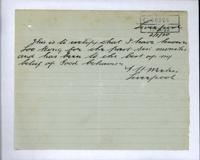 Liverpool
This is to certify that I have known
Loo Kong for the past ten months
and has been to the best of my
belief of Good behavior
Liverpool